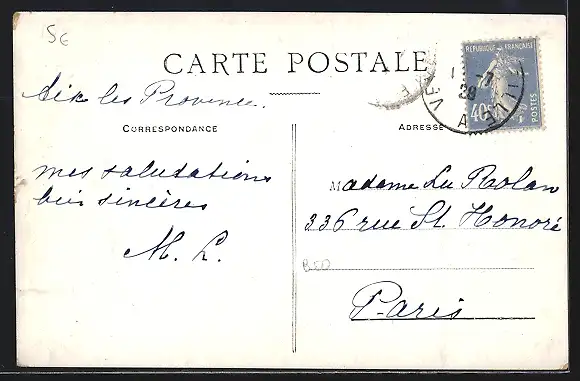 5€
CARTE POSTALE
REPUBLIQUE FRANÇAISE
40c
POSTES
28
Aix les Provence.
CORRESPONDANCE
ADRESSE
mes salutations
bien sincères
M. L.
Madame Le Rolan
336 rue St. Honoré
Paris